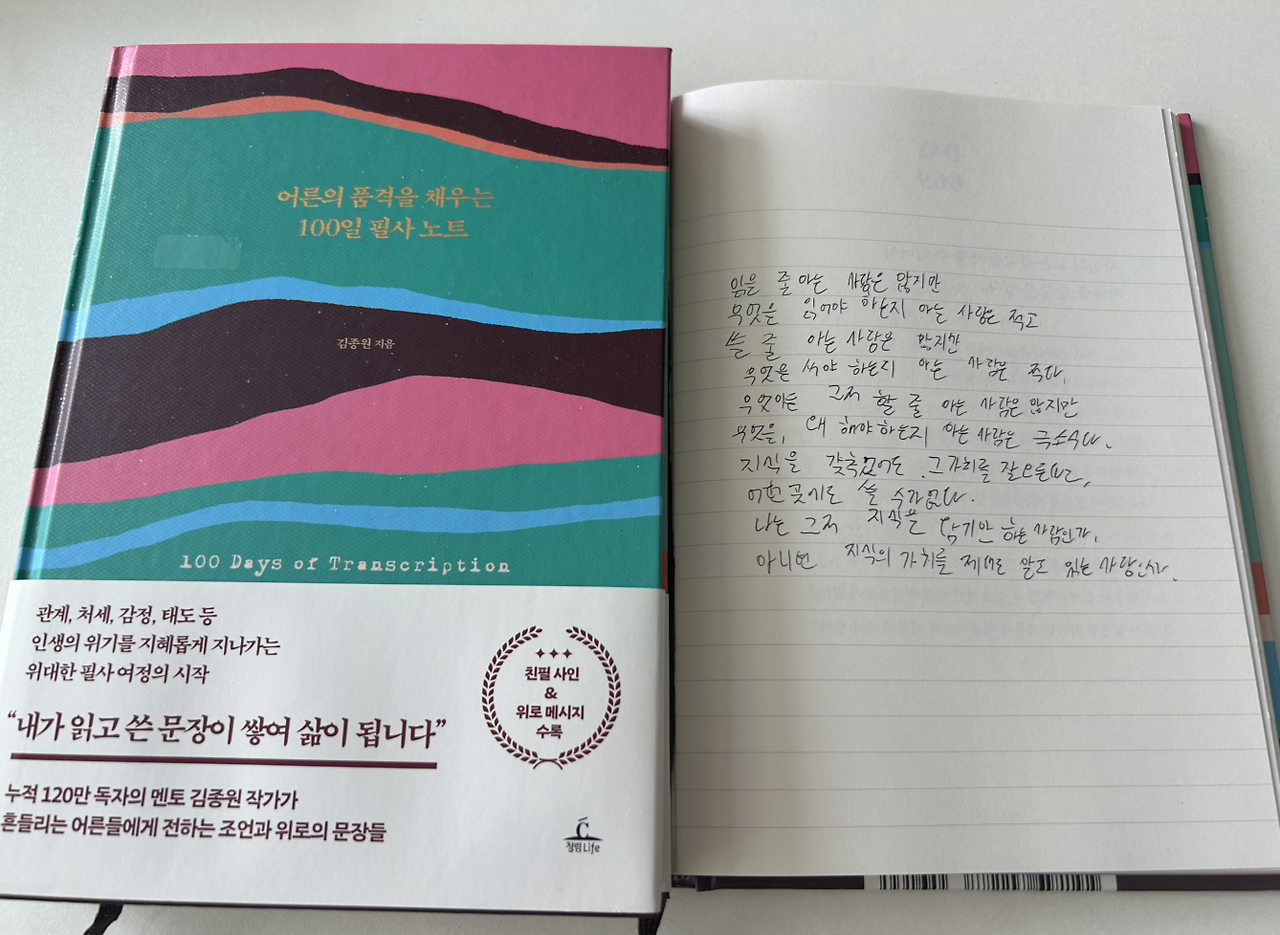 어른의 품격을 채우는
100일 필사 노트
김종원 지음
100 Days of Transcription
관계, 처세, 감정, 태도 등
인생의 위기를 지혜롭게 지나가는
위대한 필사 여정의 시작
“내가 읽고 쓴 문장이 쌓여 삶이 됩니다”
누적 120만 독자의 멘토 김종원 작가가
흔들리는 어른들에게 전하는 조언과 위로의 문장들
친필 사인
&
위로 메시지
수록
청림Life
읽을 줄 아는 사람은 많지만
무엇을 읽어야 하는지 아는 사람은 적고
쓸 줄 아는 사람은 많지만
무엇을 써야 하는지 아는 사람은 적다.
무엇이든 그저 할 줄 아는 사람은 많지만
무엇을, 왜 해야 하는지 아는 사람은 극소수다.
지식을 갖추었어도 그 가치를
어떤 곳에도 쓸 수가 없다.
나는 그저 지식을 담기만 하는 사람인가,
아니면 지식의 가치를 제대로 알고 있는 사람인가.